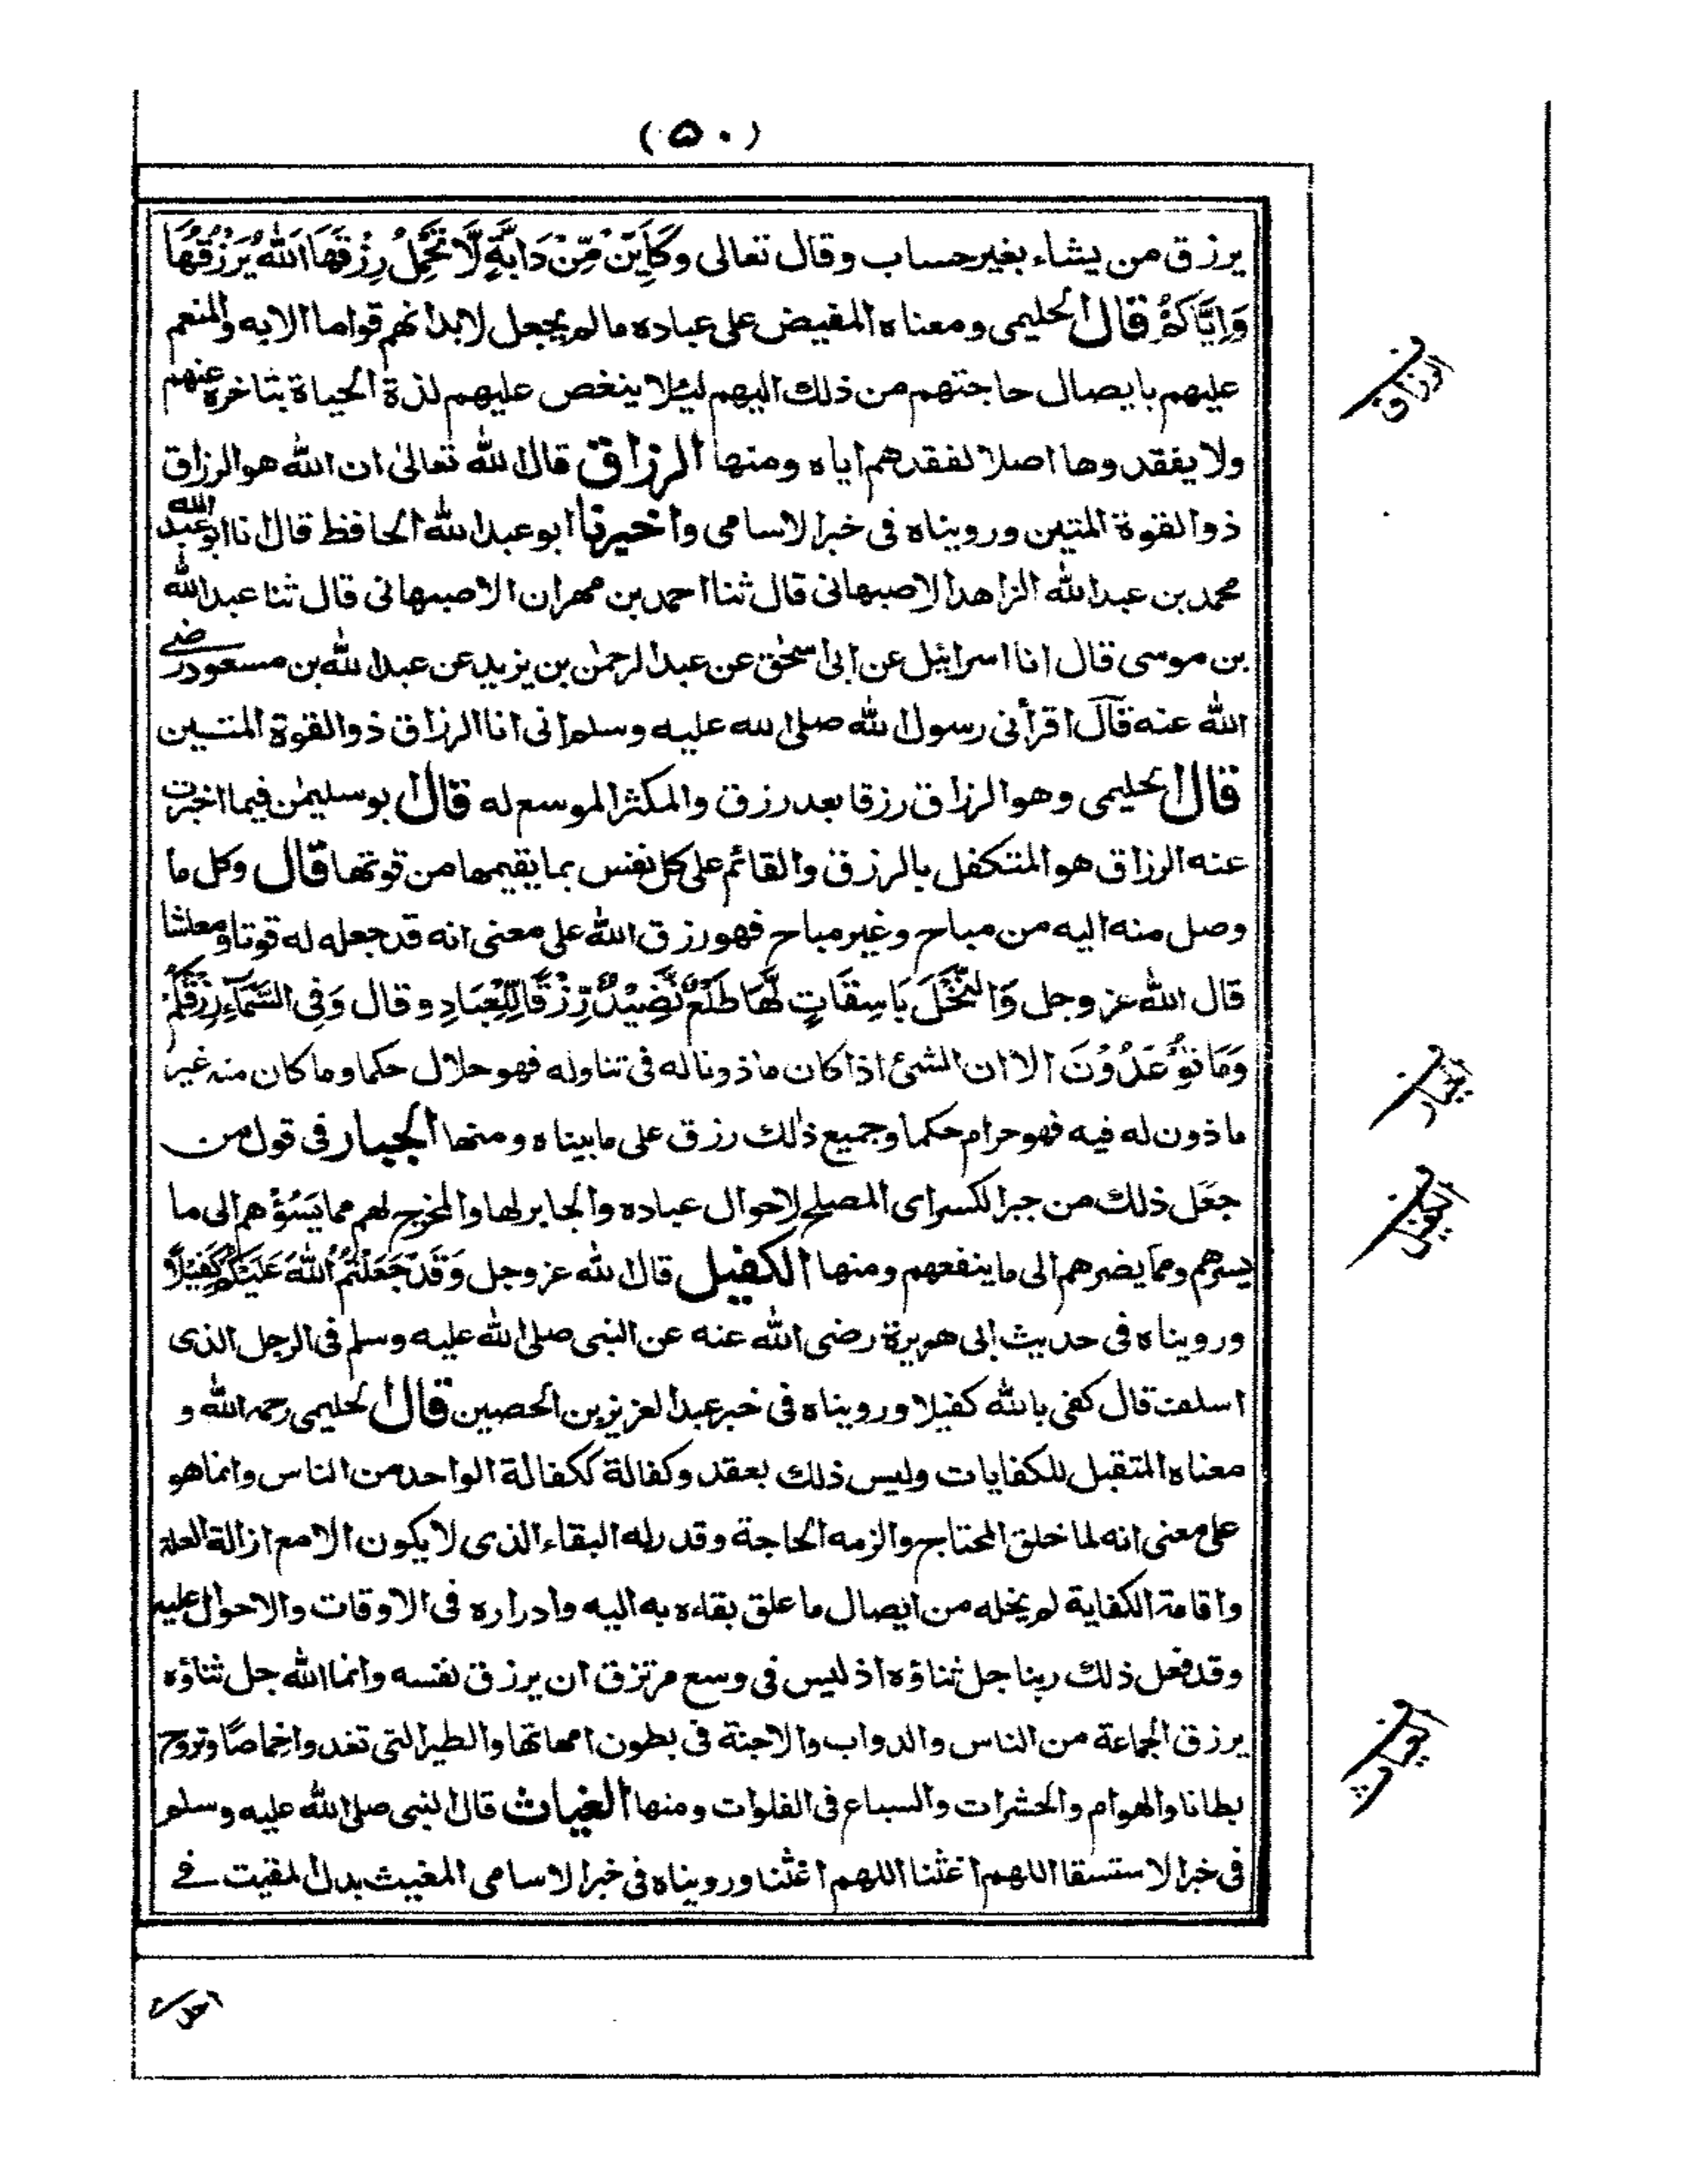 (۵۰)
يرزق من يشاء بغير حساب وقال تعالى وَكَاَيِّنْ مِّنْ دَابَّةٍ لَّا تَحْمِلُ رِزْقَهَا اَللّٰهُ يَرْزُقُهَا
وَاِيَّاكُمْ قال الحليمى ومعناه المفيض على عباده مالم يجعل لابدانهم قواما الابه والمنعم
عليهم بايصال حاجتهم من ذلك اليهم ليئلا ينغص عليهم لذة الحياة بتاخره عنهم
ولا يفقدوها اصلا لفقدهم اياه ومنها الرزاق قال الله تعالىٰ ان الله هو الرزاق
ذو القوة المتين ورويناه فى خبر الاسامى واخبرنا ابو عبد الله الحافظ قال انا ابو عبد الله
محمد بن عبد الله الزاهد الاصبهانى قال ثنا احمد بن مهران الاصبهانى قال ثنا عبد الله
بن موسى قال انا اسرائيل عن ابى اسحٰق عن عبد الرحمٰن بن يزيد عن عبد الله بن مسعود رضى
الله عنه قال اقرأنى رسول الله صلى الله عليه وسلم انى انا الرزاق ذو القوة المتين
قال الحليمى وهو الرزاق رزقا بعد رزق والمكثر الموسع له قال ابو سليمٰن فيما اخبرت
عنه الرزاق هو المتكفل بالرزق والقائم على كل نفس بما يقيمها من قوتها قال وكل ما
وصل منه اليه من مباح وغير مباح فهو رزق الله على معنى انه قد جعله له قوتا ومعاشا
قال الله عز وجل وَالنَّخْلَ بَاسِقَاتٍ لَّهَا طَلْعٌ نَّضِيْدٌ رِّزْقًا لِّلْعِبَادِ وقال وَفِى السَّمَآءِ رِزْقُكُمْ
وَمَا تُوْعَدُوْنَ الا ان الشئ اذا كان ماذونا له فى تناوله فهو حلال حكما وما كان منه غير
ماذون له فيه فهو حرام حكما وجميع ذٰلك رزق على ما بيناه ومنها الجبار فى قول من
جعل ذلك من جبر الكسر اى المصلح لاحوال عباده والجابر لها والمخرج لهم مما يَسُؤْهم الى ما
يسرهم ومما يضرهم الى ما ينفعهم ومنها الكفيل قال الله عز وجل وَقَدْ جَعَلْتُمُ اللّٰهَ عَلَيْكُمْ كَفِيْلًا
ورويناه فى حديث ابى هريرة رضى الله عنه عن النبى صلى الله عليه وسلم فى الرجل الذى
اسلف قال كفى بالله كفيلا ورويناه فى خبر عبد العزيز بن الحصين قال الحليمى رحمه الله و
معناه المتقبل للكفايات وليس ذلك بعقد وكفالة ككفالة الواحد من الناس وانما هو
على معنى انه لما خلق المحتاج والزمه الحاجة وقدر له البقاء الذى لا يكون الا مع ازالة العلة
واقامة الكفاية لم يخله من ايصال ما علق بقاءه به اليه وادراره فى الاوقات والاحوال عليه
وقد فعل ذلك ربنا جل ثناؤه اذ ليس فى وسع مرتزق ان يرزق نفسه وانما الله جل ثناؤه
يرزق الجماعة من الناس والدواب والاجنة فى بطون امهاتها والطير التى تغدو اخماصًا وتروح
بطانا والهوام والحشرات والسباع فى الفلوات ومنها الغياث قال النبى صلى الله عليه وسلم
فى خبر الاستسقا اللهم اغثنا اللهم اغثنا ورويناه فى خبر الاسامى المغيث بدل المقيت فى
الرزاق
الجبار
الكفيل
الغياث
احد